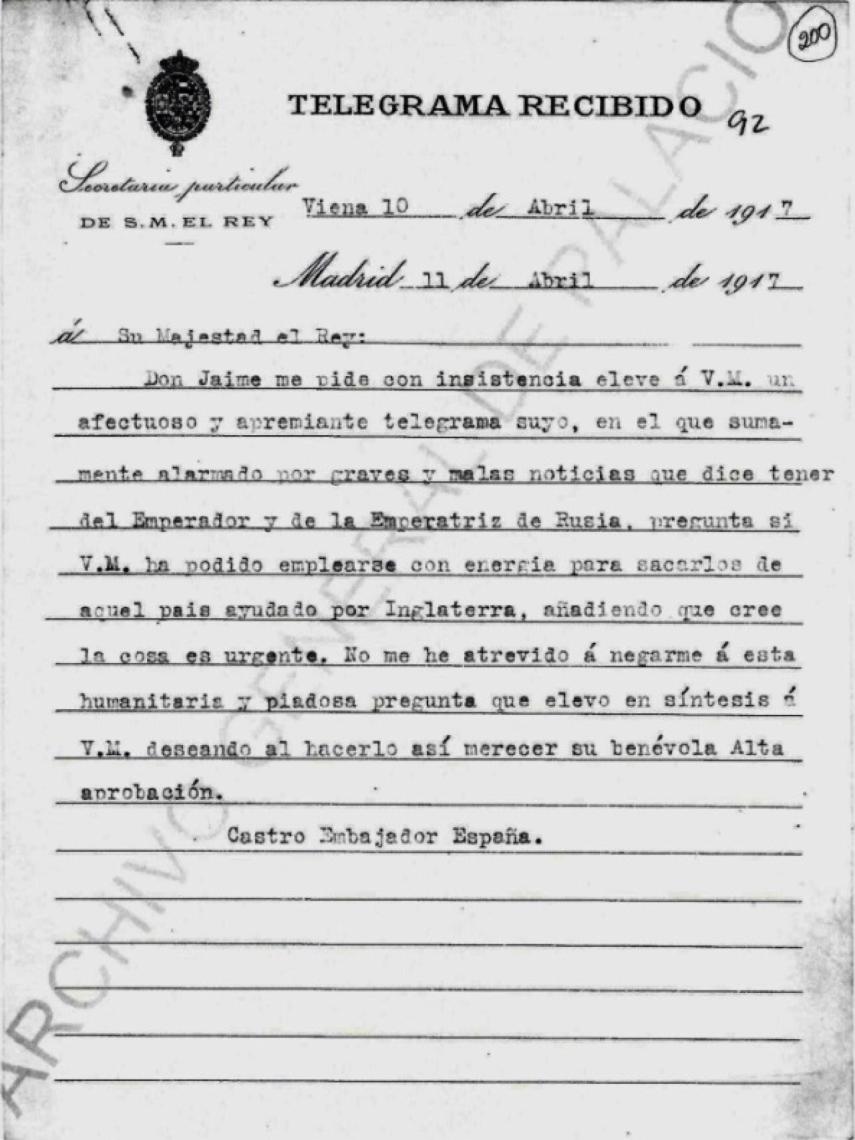 200
TELEGRAMA RECIBIDO
92
Secretaria particular
DE S.M. EL REY
Viena 10 de Abril de 1917
Madrid 11 de Abril de 1917
á Su Majestad el Rey:
Don Jaime me pide con insistencia eleve á V.M. un
afectuoso y apremiante telegrama suyo, en el que suma-
mente alarmado por graves y malas noticias que dice tener
del Emperador y de la Emperatriz de Rusia, pregunta si
V.M. ha podido emplearse con energia para sacarlos de
aquel pais ayudado por Inglaterra, añadiendo que cree
la cosa es urgente. No me he atrevido á negarme á esta
humanitaria y piadosa pregunta que elevo en síntesis á
V.M. deseando al hacerlo así merecer su benévola Alta
aprobación.
Castro Embajador España.
ARCHIVO GENERAL DE PALACIO